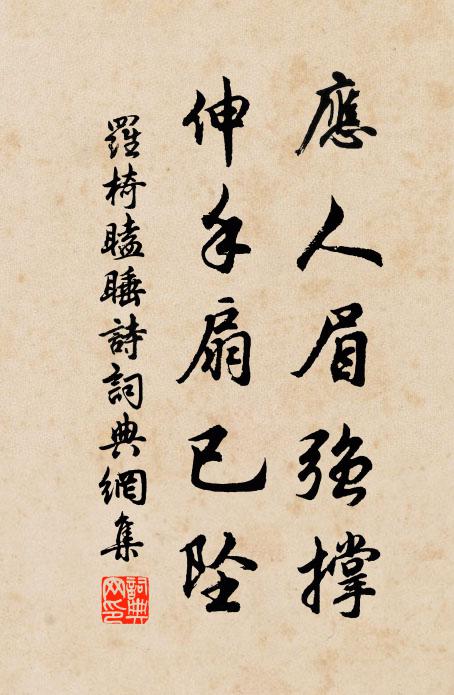 應人眉強撐
伸手扇已墜
羅椅瞌睡詩詞典網集
詞典網印